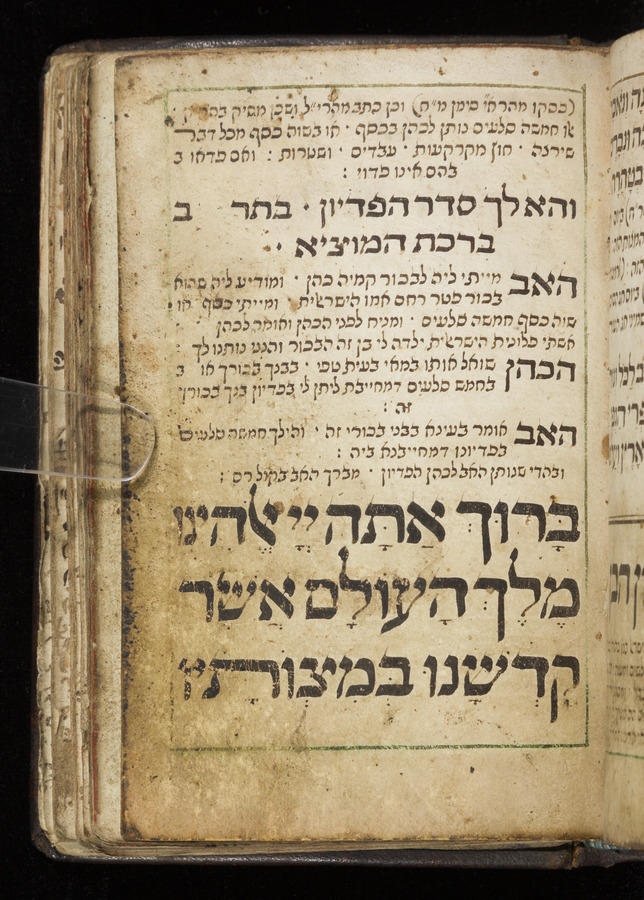 (פסקו מהרא״י סימן מ״ח) וכן כתב מהרי״ל ושכן מסיק
או חמשה סלעים נותן לכהן בכסף · או בשוה כסף מכל דבר
שירצה · חוץ מקרקעות · עבדים · ושטרות : ואם פדאו ב
בהם אינו פדוי :
והא לך סדר הפדיון · בתר ב
ברכת המוציא ·
האב מייתי ליה לבכור קמיה כהן · ומודיע ליה שהוא
בכור פטר רחם אמו הישראלית · ומייתי כסף או
שוה כסף חמשה סלעים · ומניח לפני הכהן ואומר לכהן
אשתי פלונית הישראלית ילדה לי בן זה הבכור והנני נותנו לך :
הכהן שואל אותו במאי בעית טפי · בבנך בכורך או ב
בחמש סלעים דמחייבת ליתן לי בפדיון בנך בכורך
זה :
האב אומר בעינא בבני בכורי זה · והילך חמשה סלעים
בפדיונו דמחייבנא ביה :
ובהדי שנותן האב לכהן הפדיון · מברך האב בקול רם :
בָּרוּךְ אַתָּה יְיָ אֱלֹהֵינוּ
מֶלֶךְ הָעוֹלָם אֲשֶׁר
קִדְּשָׁנוּ בְּמִצְוֹתָיו